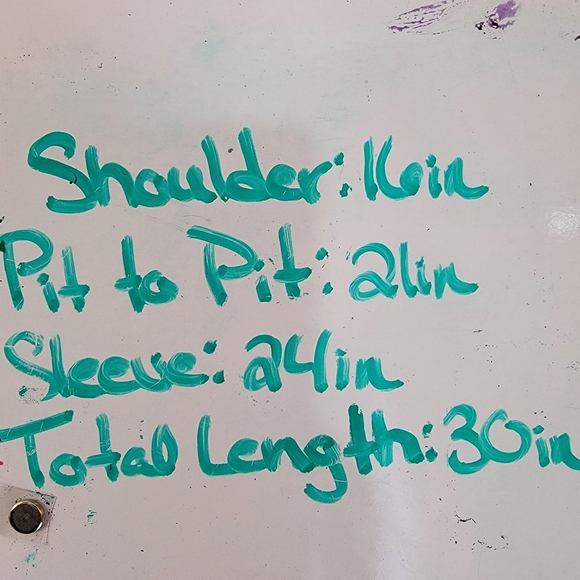 Shoulder: 16in
Pit to Pit: 21in
Sleeve: 24in
Total Length: 30in